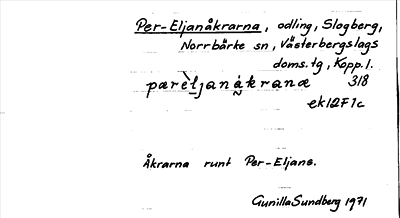 Per-Eljanåkrarna, odling, Slogberg,
Norrbärke sn, Västerbergslags
doms.tg, Kopp.l.
pærèljanåkranæ 318
ek12F1c
Åkrarna runt Per-Eljans.
Gunilla Sundberg 1971